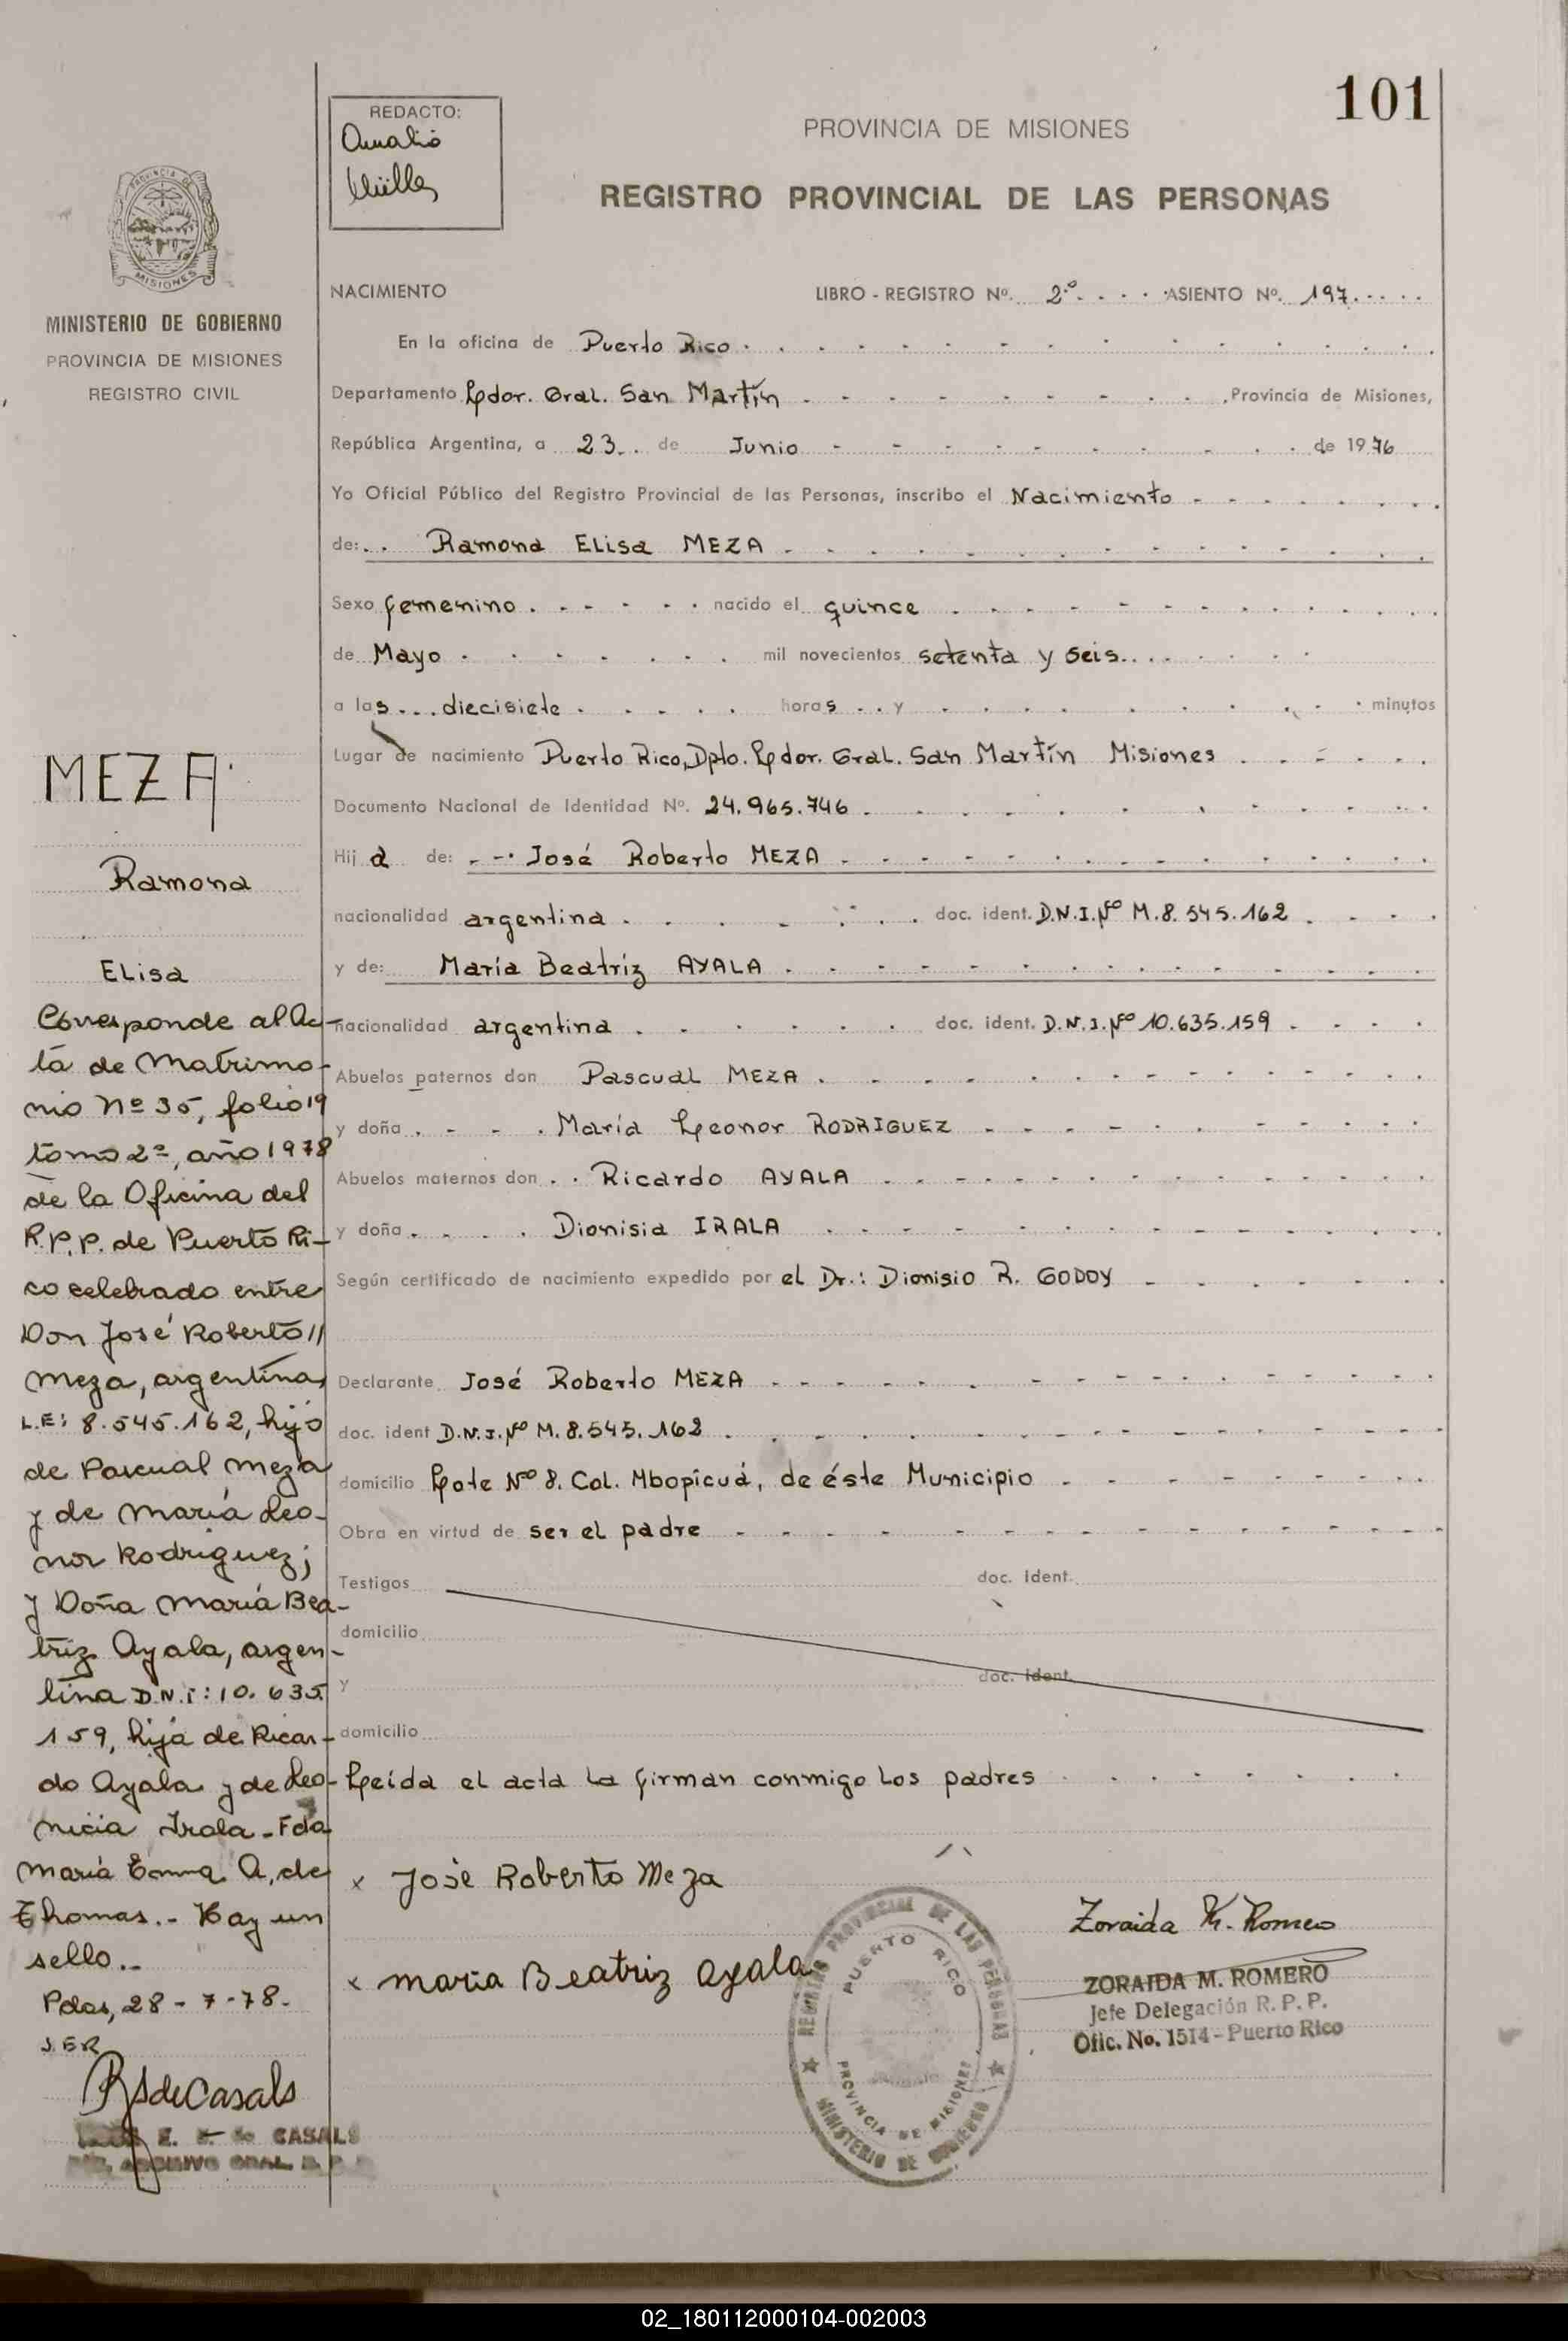 101
REDACTO:
Amalio
Müller
PROVINCIA DE MISIONES
REGISTRO PROVINCIAL DE LAS PERSONAS
PROVINCIA DE
MISIONES
MINISTERIO DE GOBIERNO
PROVINCIA DE MISIONES
REGISTRO CIVIL
NACIMIENTO LIBRO - REGISTRO Nº. 2º. ASIENTO Nº. 197
En la oficina de Puerto Rico
Departamento Ldor. Gral. San Martín, Provincia de Misiones,
República Argentina, a 23 de Junio de 1976
Yo Oficial Público del Registro Provincial de las Personas, inscribo el Nacimiento
de: Ramona Elisa MEZA
Sexo femenino nacido el quince
de Mayo mil novecientos setenta y seis
a las diecisiete horas y minutos
Lugar de nacimiento Puerto Rico, Dpto. Ldor. Gral. San Martín Misiones
Documento Nacional de Identidad Nº. 24.965.746
Hija de: José Roberto MEZA
nacionalidad argentina doc. ident. D.N.I. Nº M.8.545.162
y de: María Beatríz AYALA
nacionalidad argentina doc. ident. D.N.I. Nº 10.635.159
Abuelos paternos don Pascual MEZA
y doña María Leonor RODRIGUEZ
Abuelos maternos don Ricardo AYALA
y doña Dionisia IRALA
Según certificado de nacimiento expedido por el Dr.: Dionisio R. GODOY
Declarante José Roberto MEZA
doc. ident D.N.I. Nº M.8.545.162
domicilio Lote Nº 8. Col. Mbopicuá, de éste Municipio
Obra en virtud de ser el padre
Testigos doc. ident.
domicilio
y doc. ident.
domicilio
Leída el acta la firman conmigo los padres
x José Roberto Meza
x maria Beatriz ayala
REGISTRO PROVINCIAL DE LAS PERSONAS
PUERTO RICO
PROVINCIA DE MISIONES
MINISTERIO DE GOBIERNO
Zoraida M. Romero
ZORAIDA M. ROMERO
Jefe Delegación R. P. P.
Ofic. No. 1514 - Puerto Rico
MEZA
Ramona
Elisa
Corresponde al Ac-
ta de Matrimo-
nio Nº 35, folio 19
tomo 2º, año 1978
de la Oficina del
R.P.P. de Puerto Ri-
co celebrado entre
Don José Roberto //
Meza, argentina,
L.E: 8.545.162, hijo
de Pascual Meza
y de María Leo-
nor Rodriguez;
y Doña María Bea-
triz Ayala, argen-
tina D.N.i: 10.635.
159, hija de Ricar-
do Ayala y de Leo-
nicia Irala - Fda
María Emma A. de
Thomas.- Hay un
sello.-
Pdas, 28-7-78.
J.E.R
RSdeCasals
E. de CASALS
ARCHIVO GRAL. R. P.
02_180112000104-002003